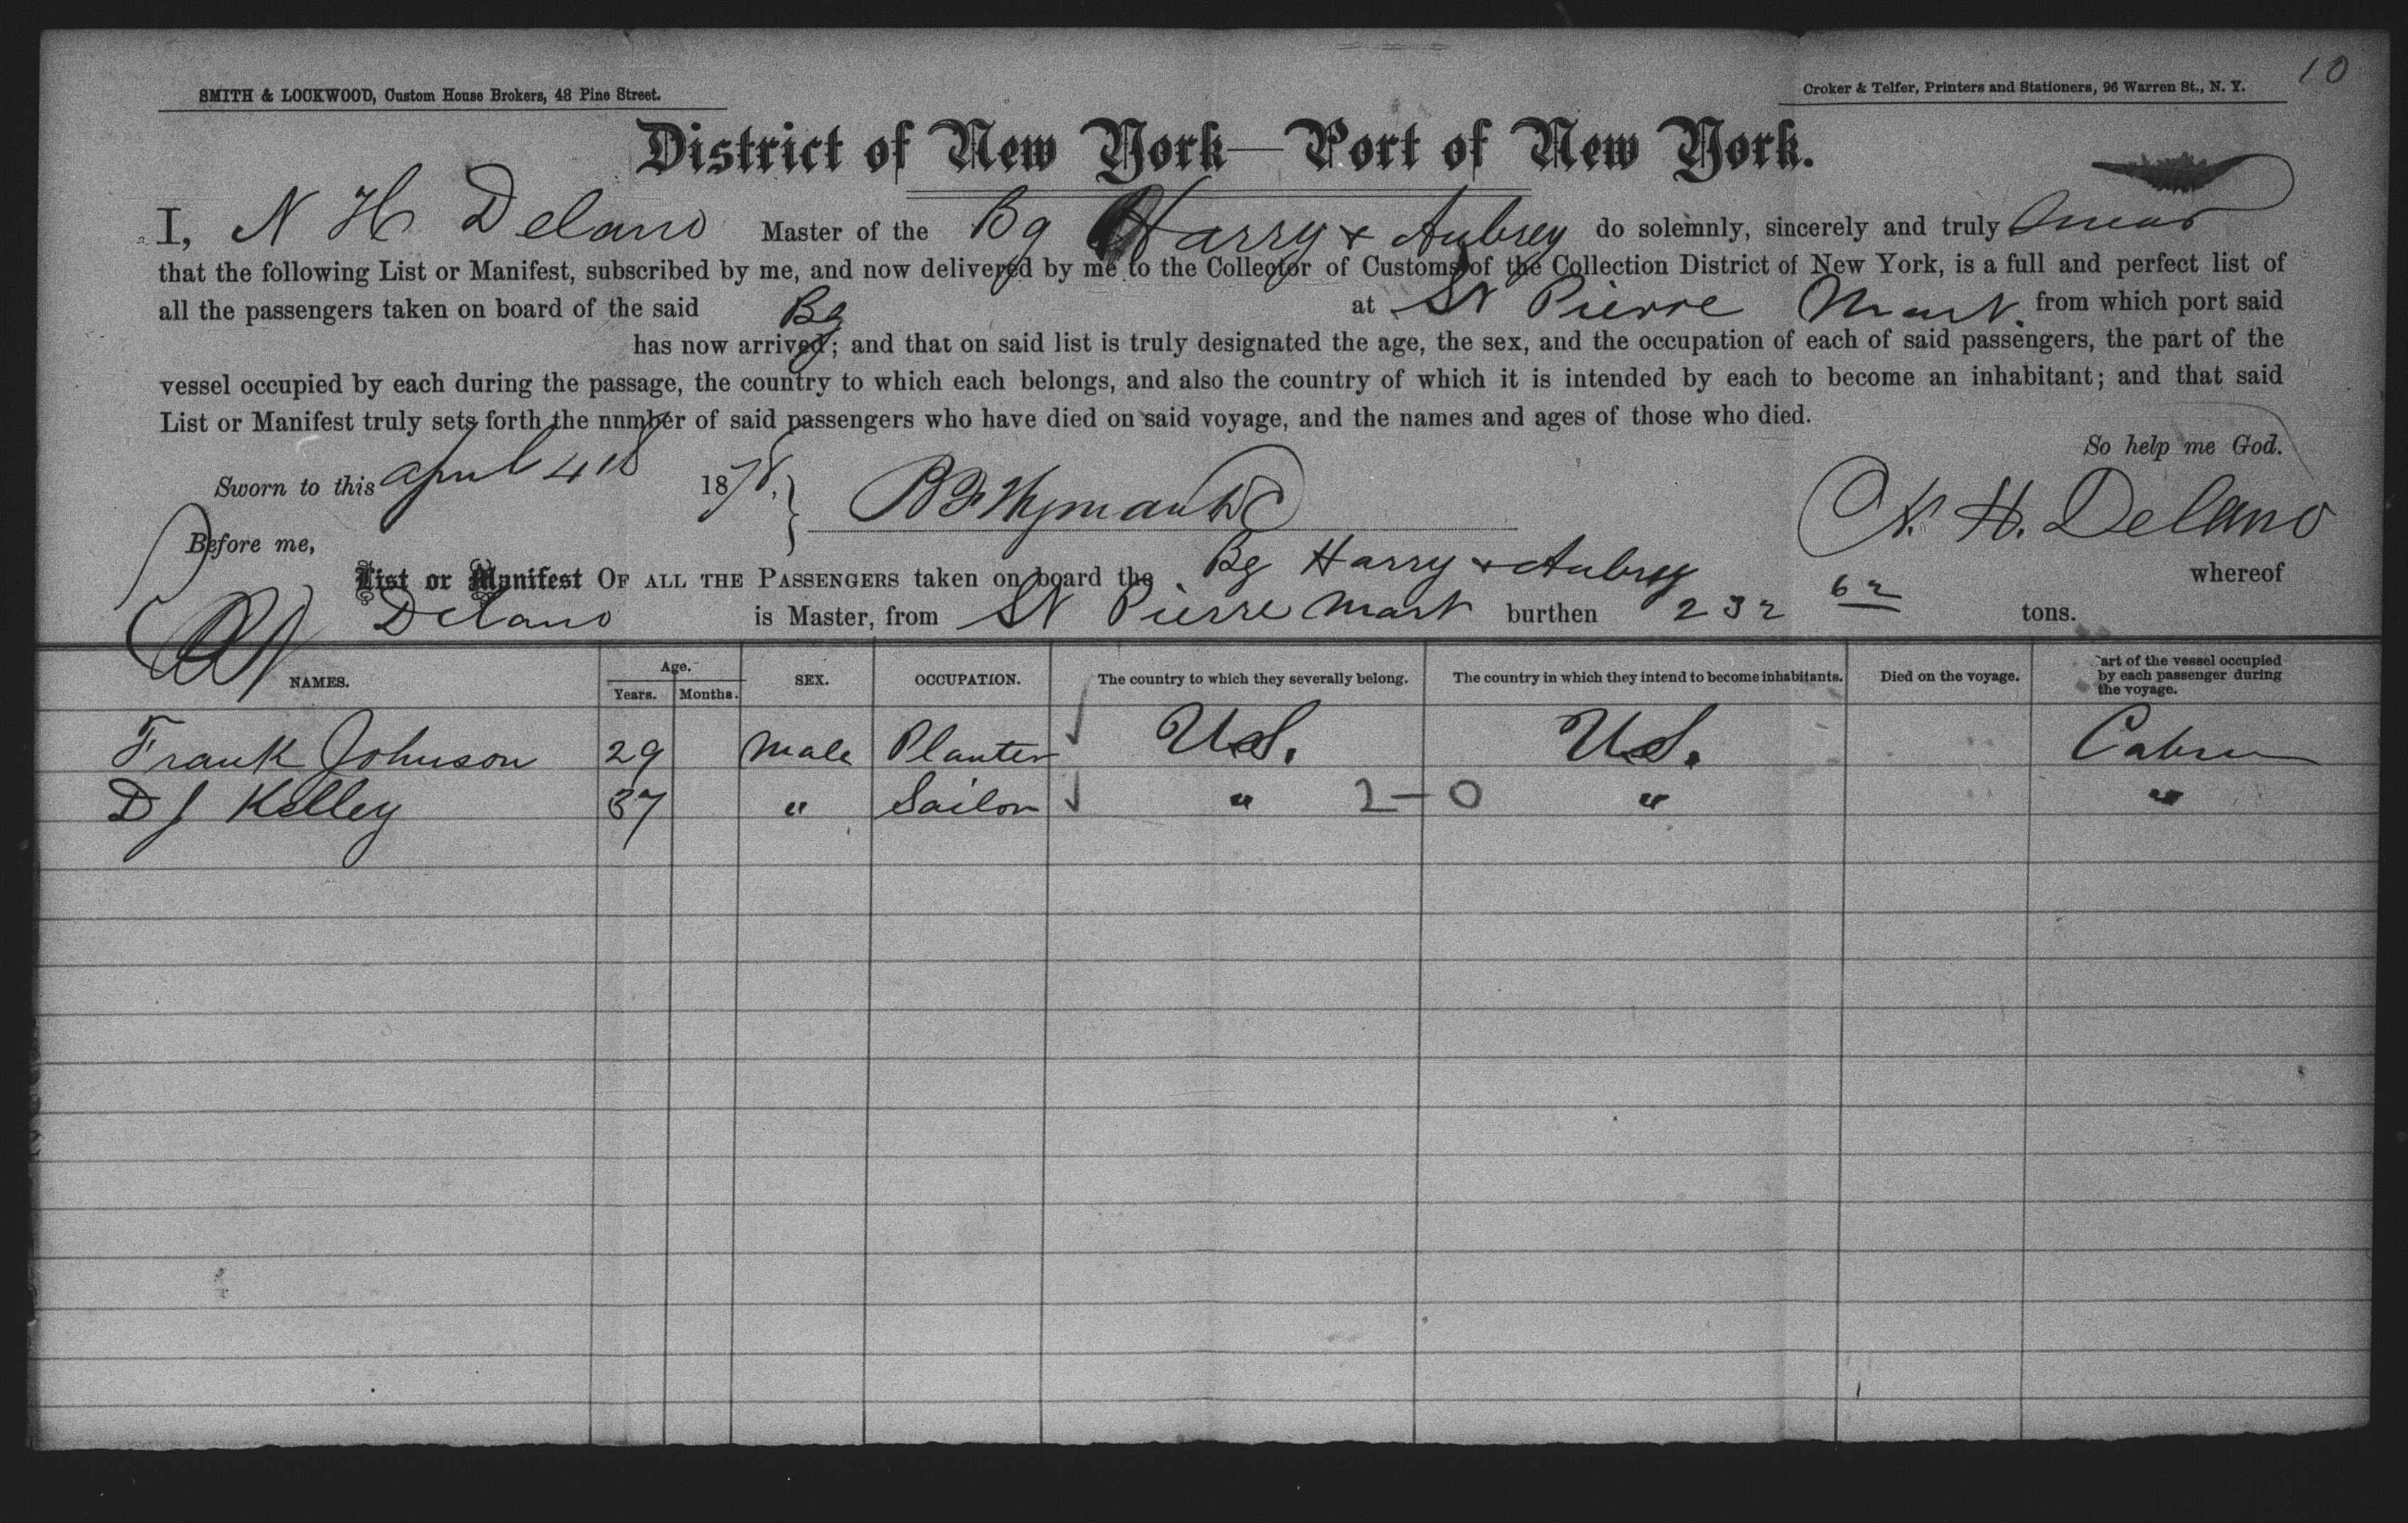 10
SMITH & LOCKWOOD, Custom House Brokers, 48 Pine Street.
Croker & Telfer, Printers and Stationers, 96 Warren St., N. Y.
District of New York—Port of New York.
I, N H Delano Master of the Bg Harry & Aubrey do solemnly, sincerely and truly Swear
that the following List or Manifest, subscribed by me, and now delivered by me to the Collector of Customs of the Collection District of New York, is a full and perfect list of
all the passengers taken on board of the said Bg at St Pierre Mart. from which port said
has now arrived; and that on said list is truly designated the age, the sex, and the occupation of each of said passengers, the part of the
vessel occupied by each during the passage, the country to which each belongs, and also the country of which it is intended by each to become an inhabitant; and that said
List or Manifest truly sets forth the nnmber of said passengers who have died on said voyage, and the names and ages of those who died.
So help me God.
Sworn to this april 4th 1878. N. H. Delano
Before me,
List or Manifest OF ALL THE PASSENGERS taken on board the Bg Harry & Aubrey whereof
Delano is Master, from St Pierre Mart burthen 232 62 tons.
NAMES. Age. Years. Months. SEX. OCCUPATION. The country to which they severally belong. The country in which they intend to become inhabitants. Died on the voyage. art of the vessel occupied by each passenger during the voyage.
Frank Johnson 29 Male Planter U.S. U.S. Cabin
D J Kelley 37 " Sailor " 2-0 " "